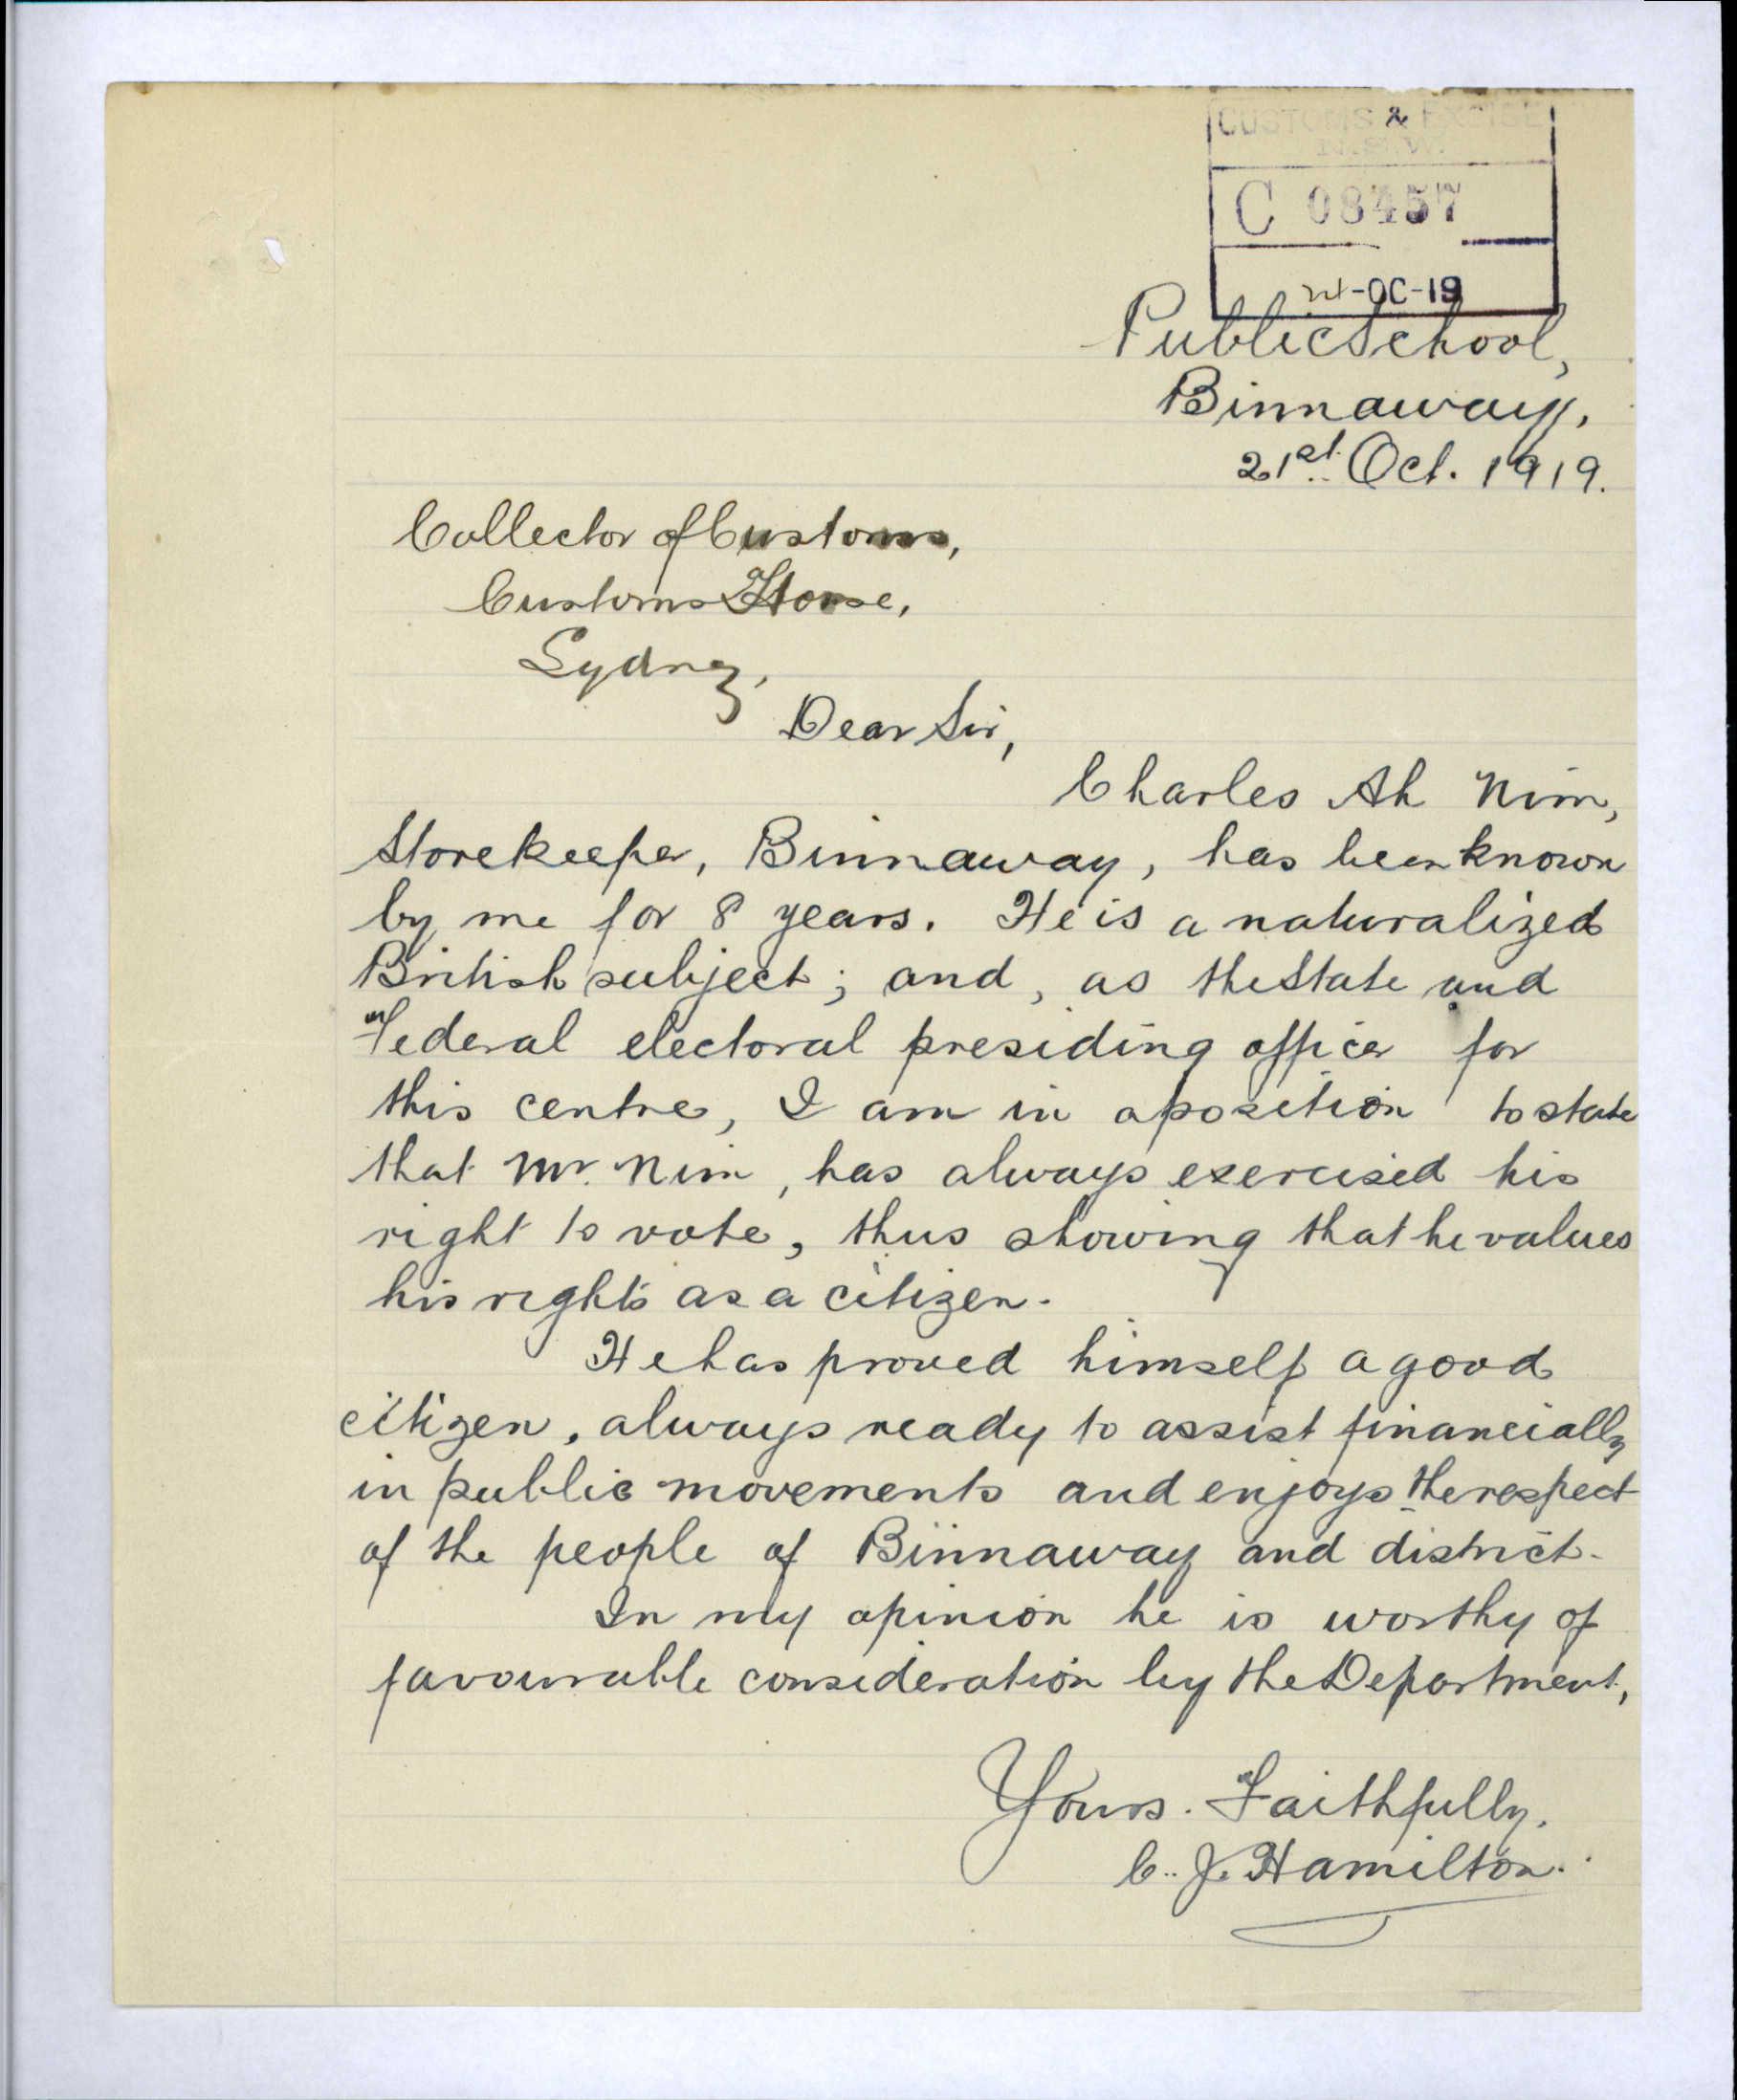 CUSTOMS & EXCISE
N.S.W.
C 08457
-OC-19
Public School,
Binnaway,
21st Oct. 1919.
Collector of Customs,
Customs House,
Sydney,
Dear Sir,
Charles Ah Nim,
Storekeeper, Binnaway, has been known
by me for 8 years. He is a naturalized
British subject; and, as the State and
Federal electoral presiding officer for
this centre, I am in a position to state
that Mr. Nim, has always exercised his
right to vote, thus showing that he values
his rights as a citizen.
He has proved himself a good
citizen, always ready to assist financially
in public movements and enjoys the respect
of the people of Binnaway and district.
In my opinion he is worthy of
favourable consideration by the Department,
Yours Faithfully,
C. J. Hamilton.